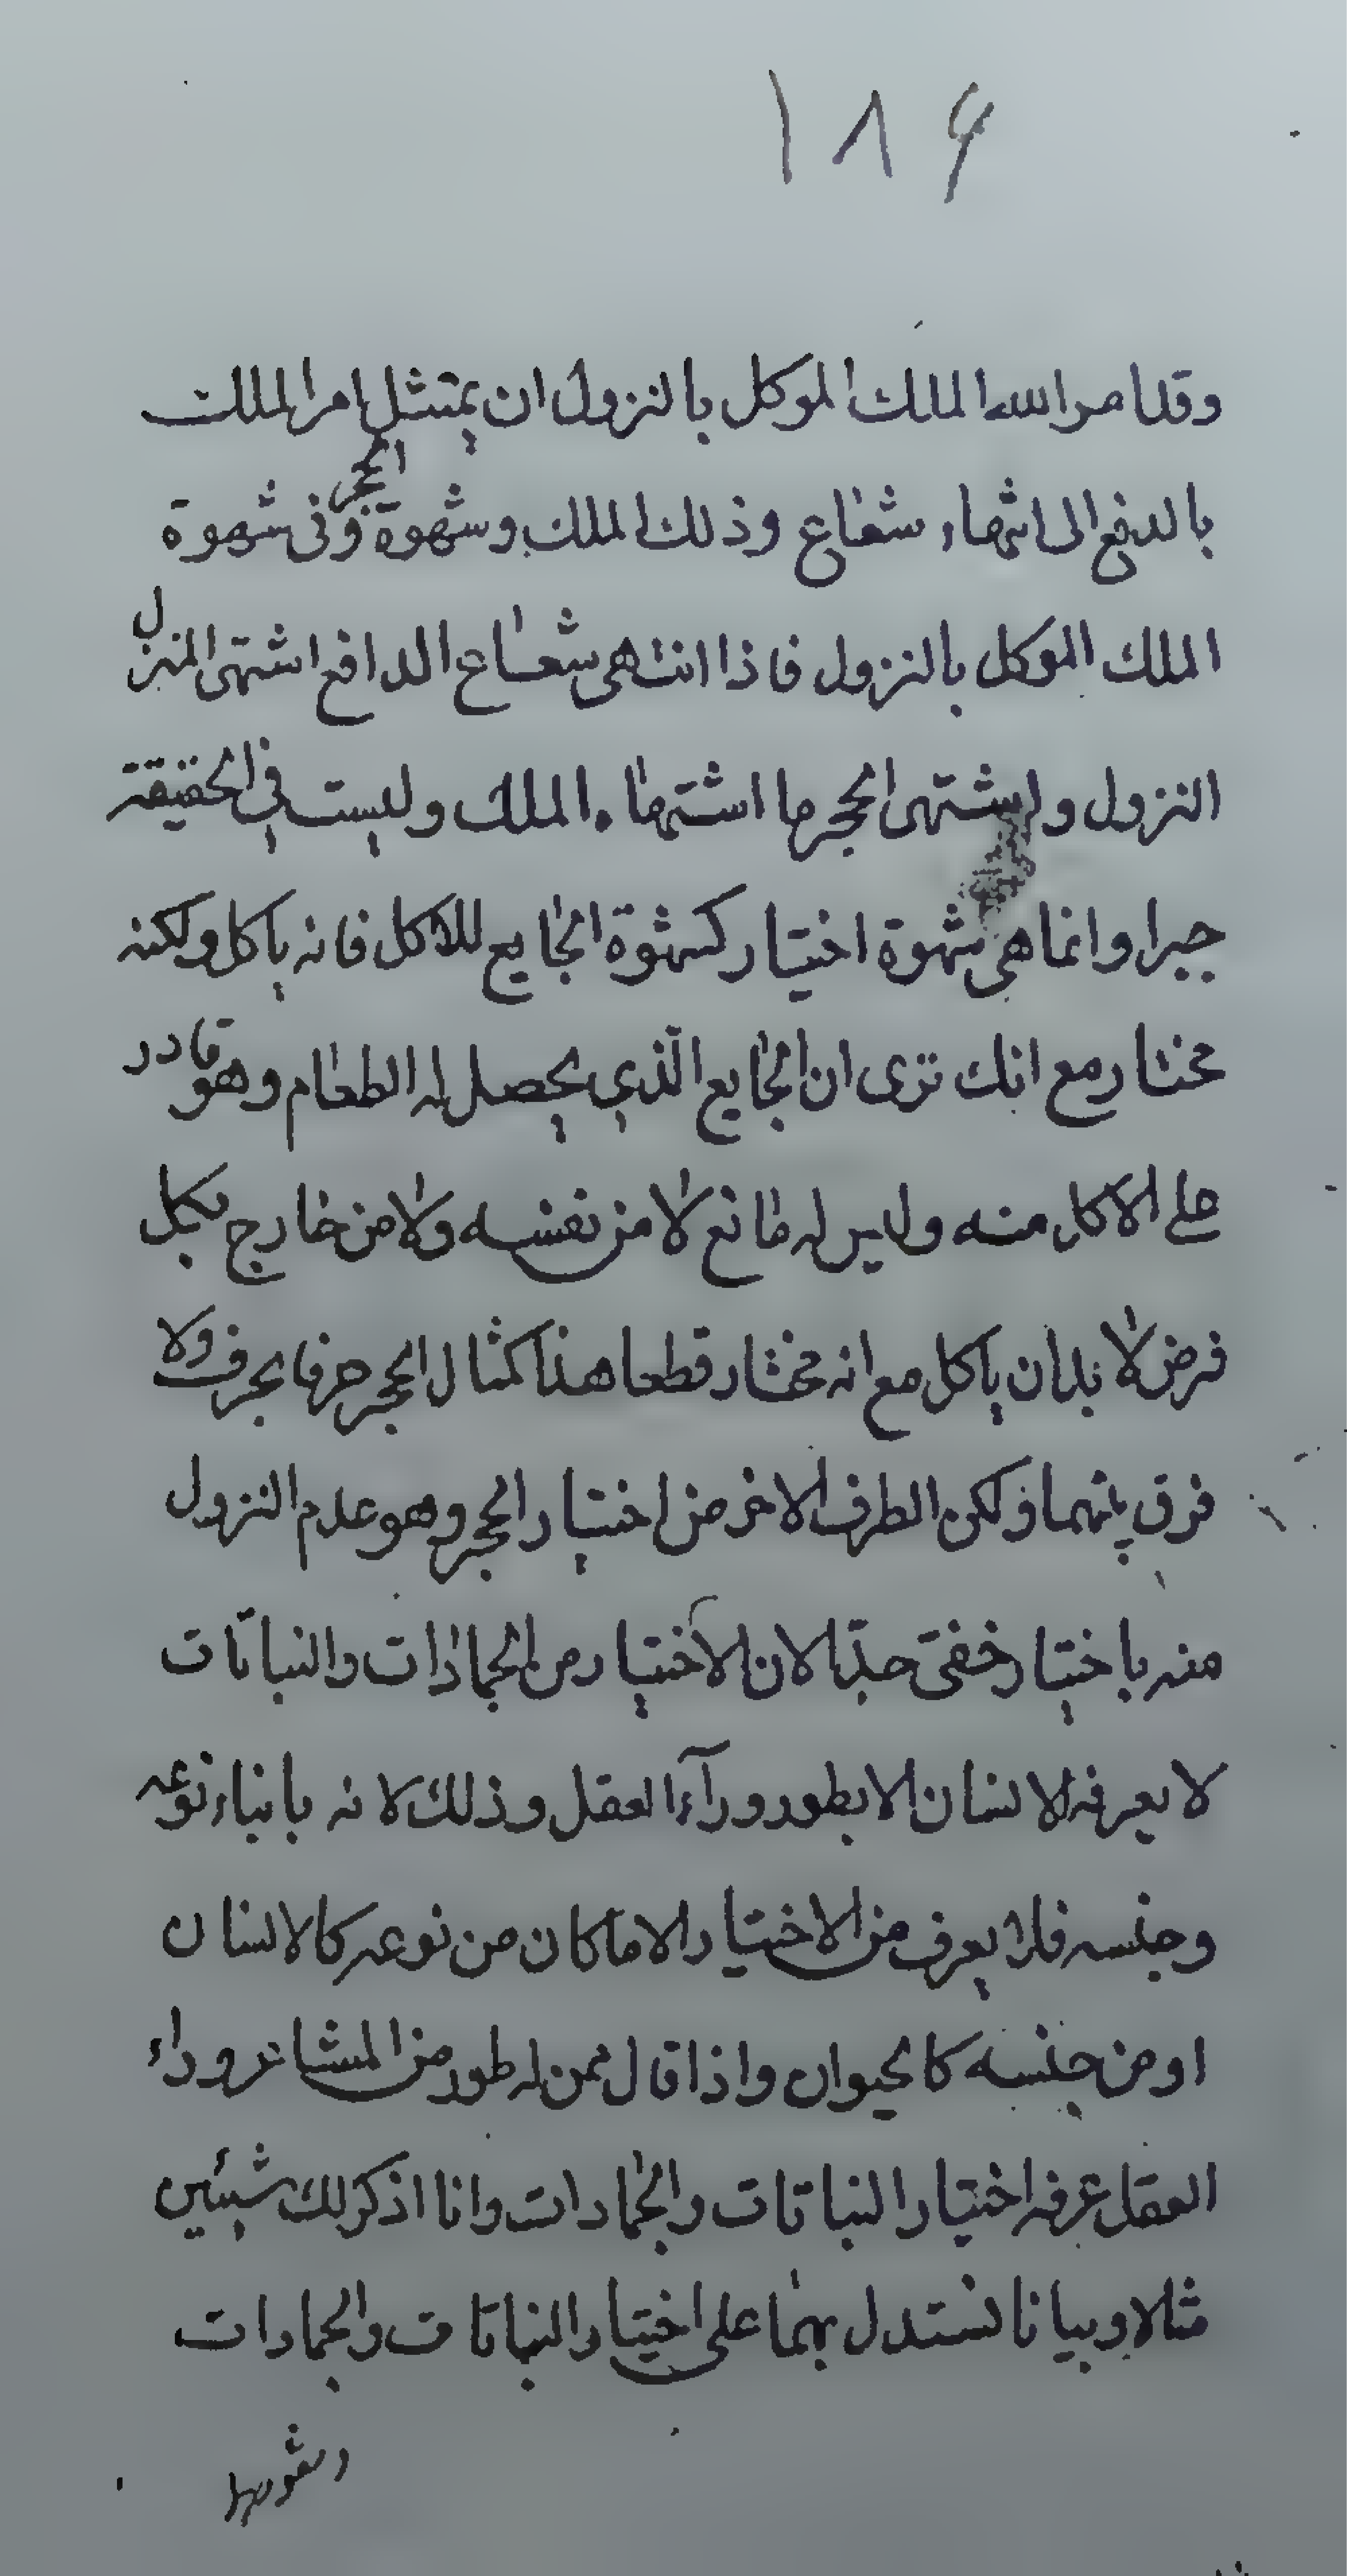 ١٨۶
وقد امر الله الملك الموكل بالنزول ان يمتثل امر الملك
بالدفع الى انتهاء شعاع وذلك الملك وشهوة الحجر فى شهوة
الملك الموكل بالنزول فاذا انتهى شعاع الدافع اشتهى المنزل
النزول واشتهى الحجر ما اشتهاء الملك وليست فى الحقيقة
جبرا وانما هى شهوة اختيار كشهوة الجايع للاكل فانه ياكل ولكنه
مختار مع انك ترى ان الجايع الّذي يحصل له الطعام وهو قادر
على الاكل منه وليس له مانع لا من نفسه ولا من خارج بكل
فرض لا بد ان ياكل مع انه مختار قطعا هذا كمثال الحجر حرفا بحرف ولا
فرق بينهما ولكن الطرف الاخر من اختيار الحجر وهو عدم النزول
منه باختيار خفىّ جدّا لان الاختيار من الجمادات والنباتات
لا يعرفه الانسان الا بطور ورآء العقل وذلك لانه بابناء نوعه
وجنسه فلا يعرف من الاختيار الا ما كان من نوعه كالانسان
او من جنسه كالحيوان واذا قال ممن له طور من المشاعر وراء
العقل عرفه اختيار النباتات والجمادات وانا اذكر لك شيئين
مثلا وبيانا تستدل بهما على اختيار النباتات والجمادات